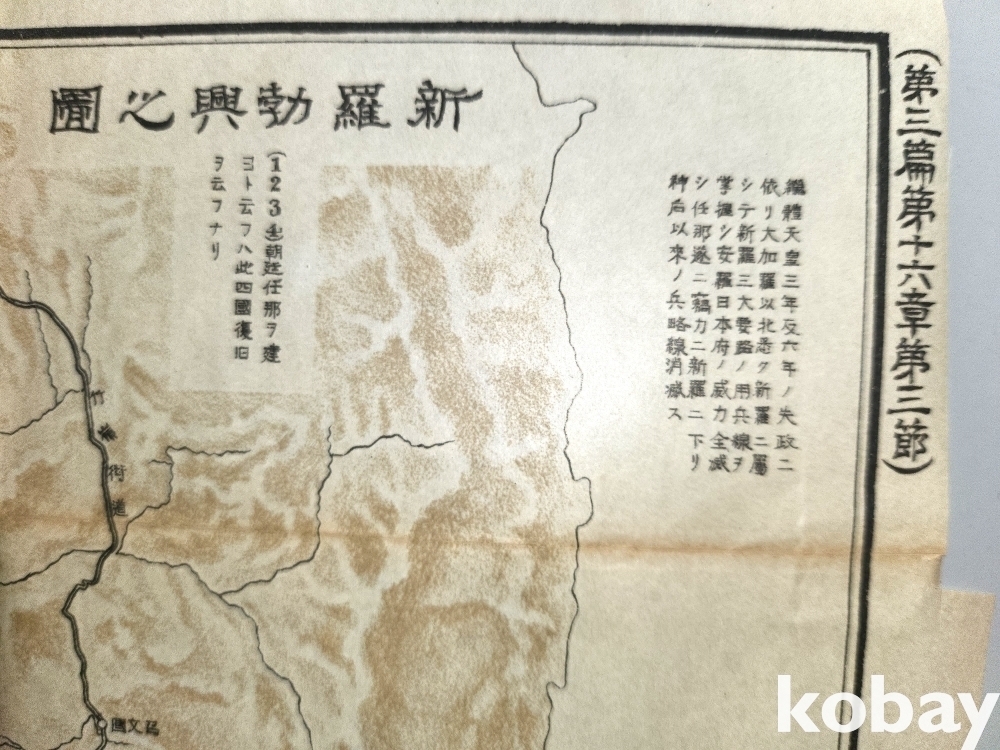 (第三篇第十六章第三節)
新羅勃興之圖
繼體天皇三年及六年ノ失政ニ
依リ大加羅以北悉ク新羅ニ屬
シテ新羅三大要路ノ用兵線ヲ
掌握シ安羅日本府ノ威力全滅
シ任那遂ニ獨力ニ新羅ニ下リ
神后以來ノ兵略線消滅ス
(1 2 3 4)朝廷任那ヲ建
ヨト云フハ此四國復旧
ヲ云フナリ
竹
嶺
街
道
召文國
kobay